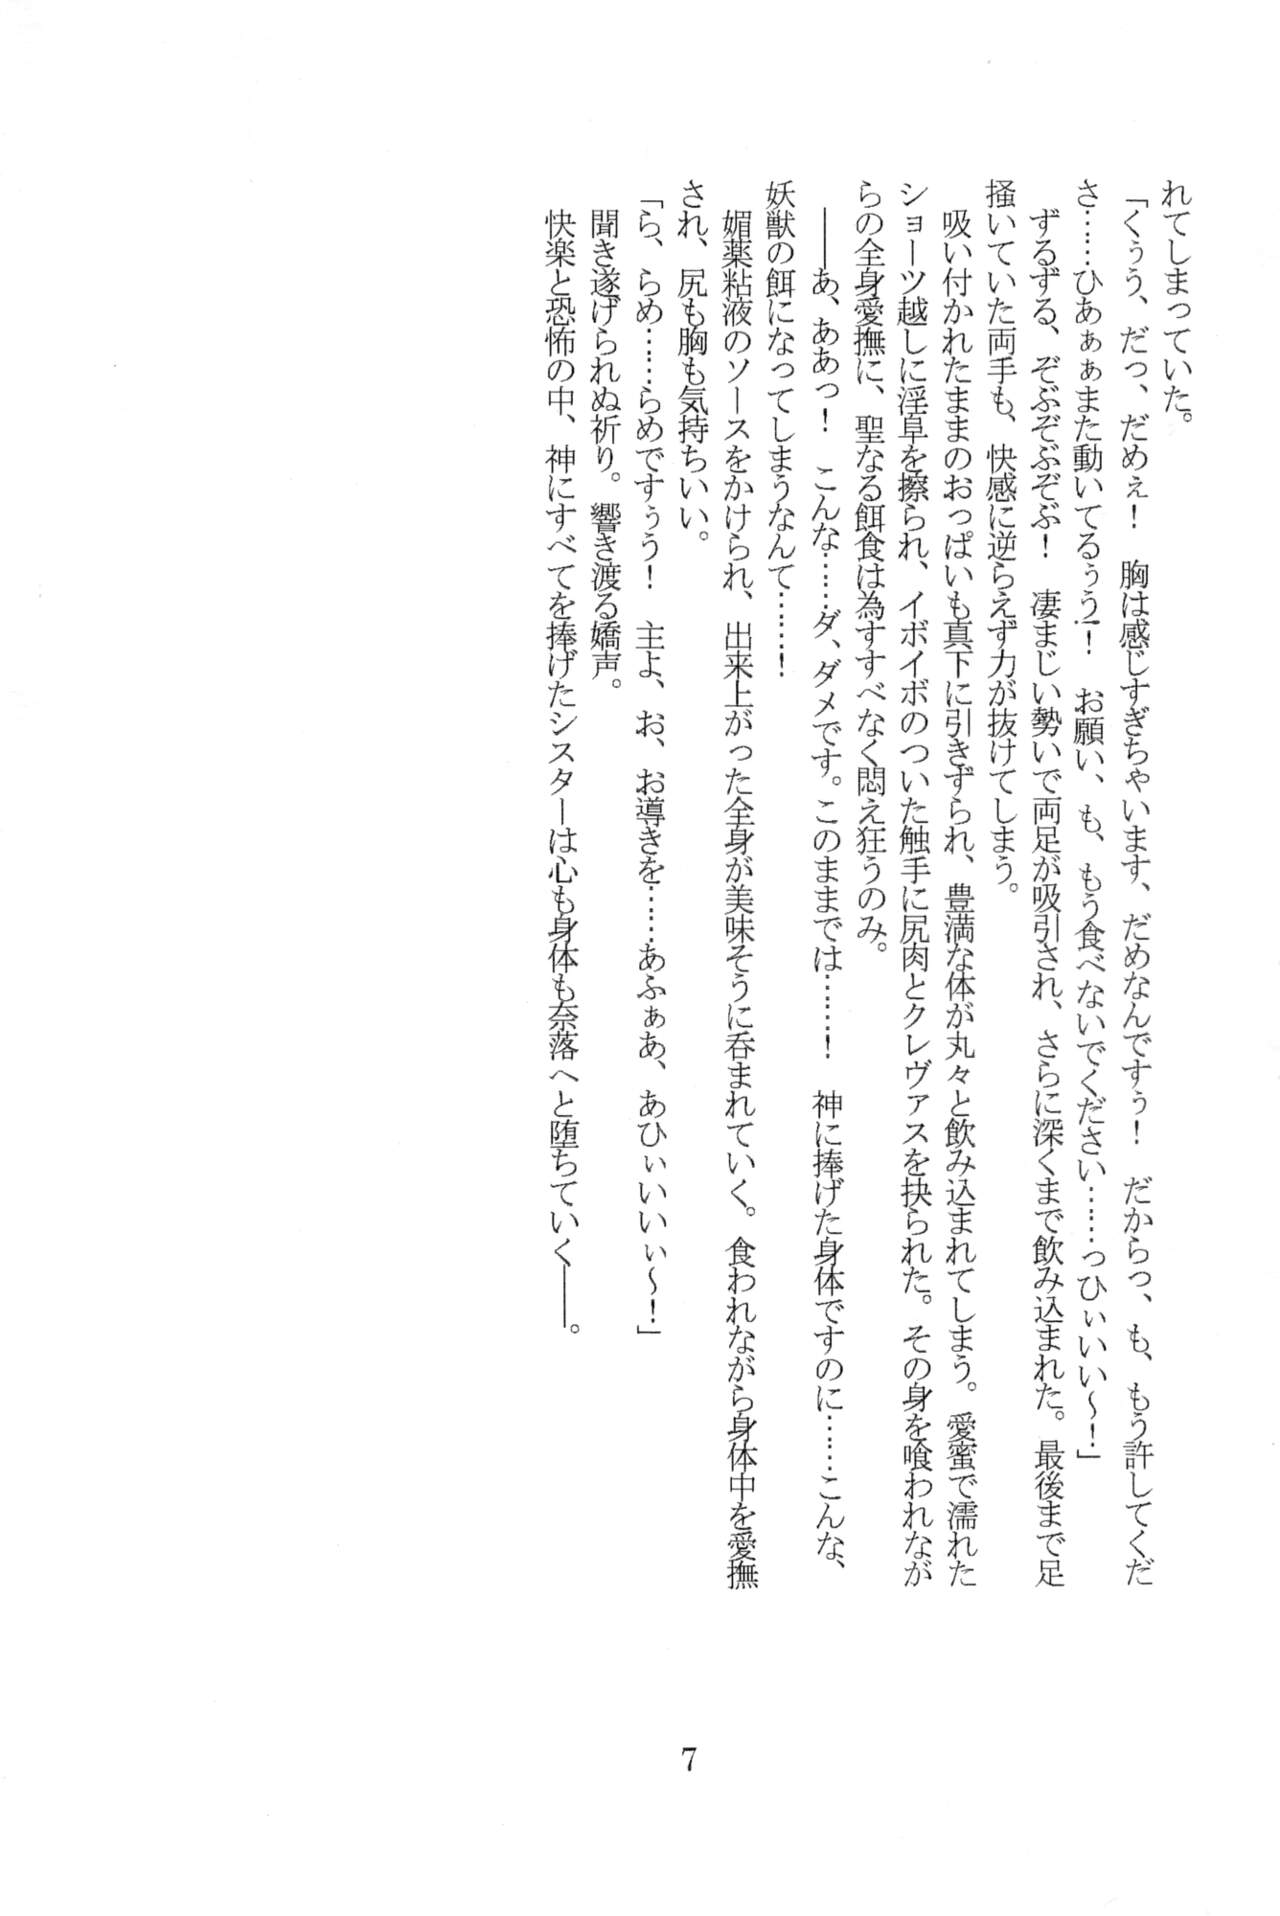 れてしまっていた。
「くぅう、だっ、だめぇ！　胸は感じすぎちゃいます、だめなんですぅ！　だからっ、も、もう許してくだ
さ……ひあぁぁまた動いてるぅう！　お願い、も、もう食べないでください……っひぃいい～！」
ずるずる、ぞぶぞぶぞぶ！　凄まじい勢いで両足が吸引され、さらに深くまで飲み込まれた。最後まで足
掻いていた両手も、快感に逆らえず力が抜けてしまう。
吸い付かれたままのおっぱいも真下に引きずられ、豊満な体が丸々と飲み込まれてしまう。愛蜜で濡れた
ショーツ越しに淫阜を擦られ、イボイボのついた触手に尻肉とクレヴァスを抉られた。その身を喰われなが
らの全身愛撫に、聖なる餌食は為すすべなく悶え狂うのみ。
――あ、ああっ！　こんな……ダ、ダメです。このままでは……！　神に捧げた身体ですのに……こんな、
妖獣の餌になってしまうなんて……！
媚薬粘液のソースをかけられ、出来上がった全身が美味そうに呑まれていく。食われながら身体中を愛撫
され、尻も胸も気持ちいい。
「ら、らめ……らめですぅう！　主よ、お、お導きを……あふぁあ、あひぃいいぃ～！」
聞き遂げられぬ祈り。響き渡る嬌声。
快楽と恐怖の中、神にすべてを捧げたシスターは心も身体も奈落へと堕ちていく――。
7